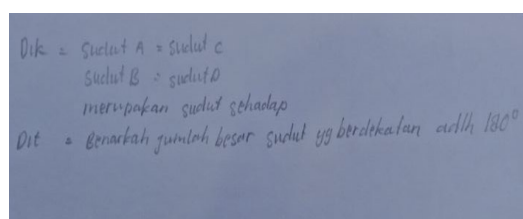 Dik = sudut A = sudut C
sudut B = sudut D
merupakan sudut sehadap
Dit = Benarkah jumlah besar sudut yg berdekatan adlh 180°